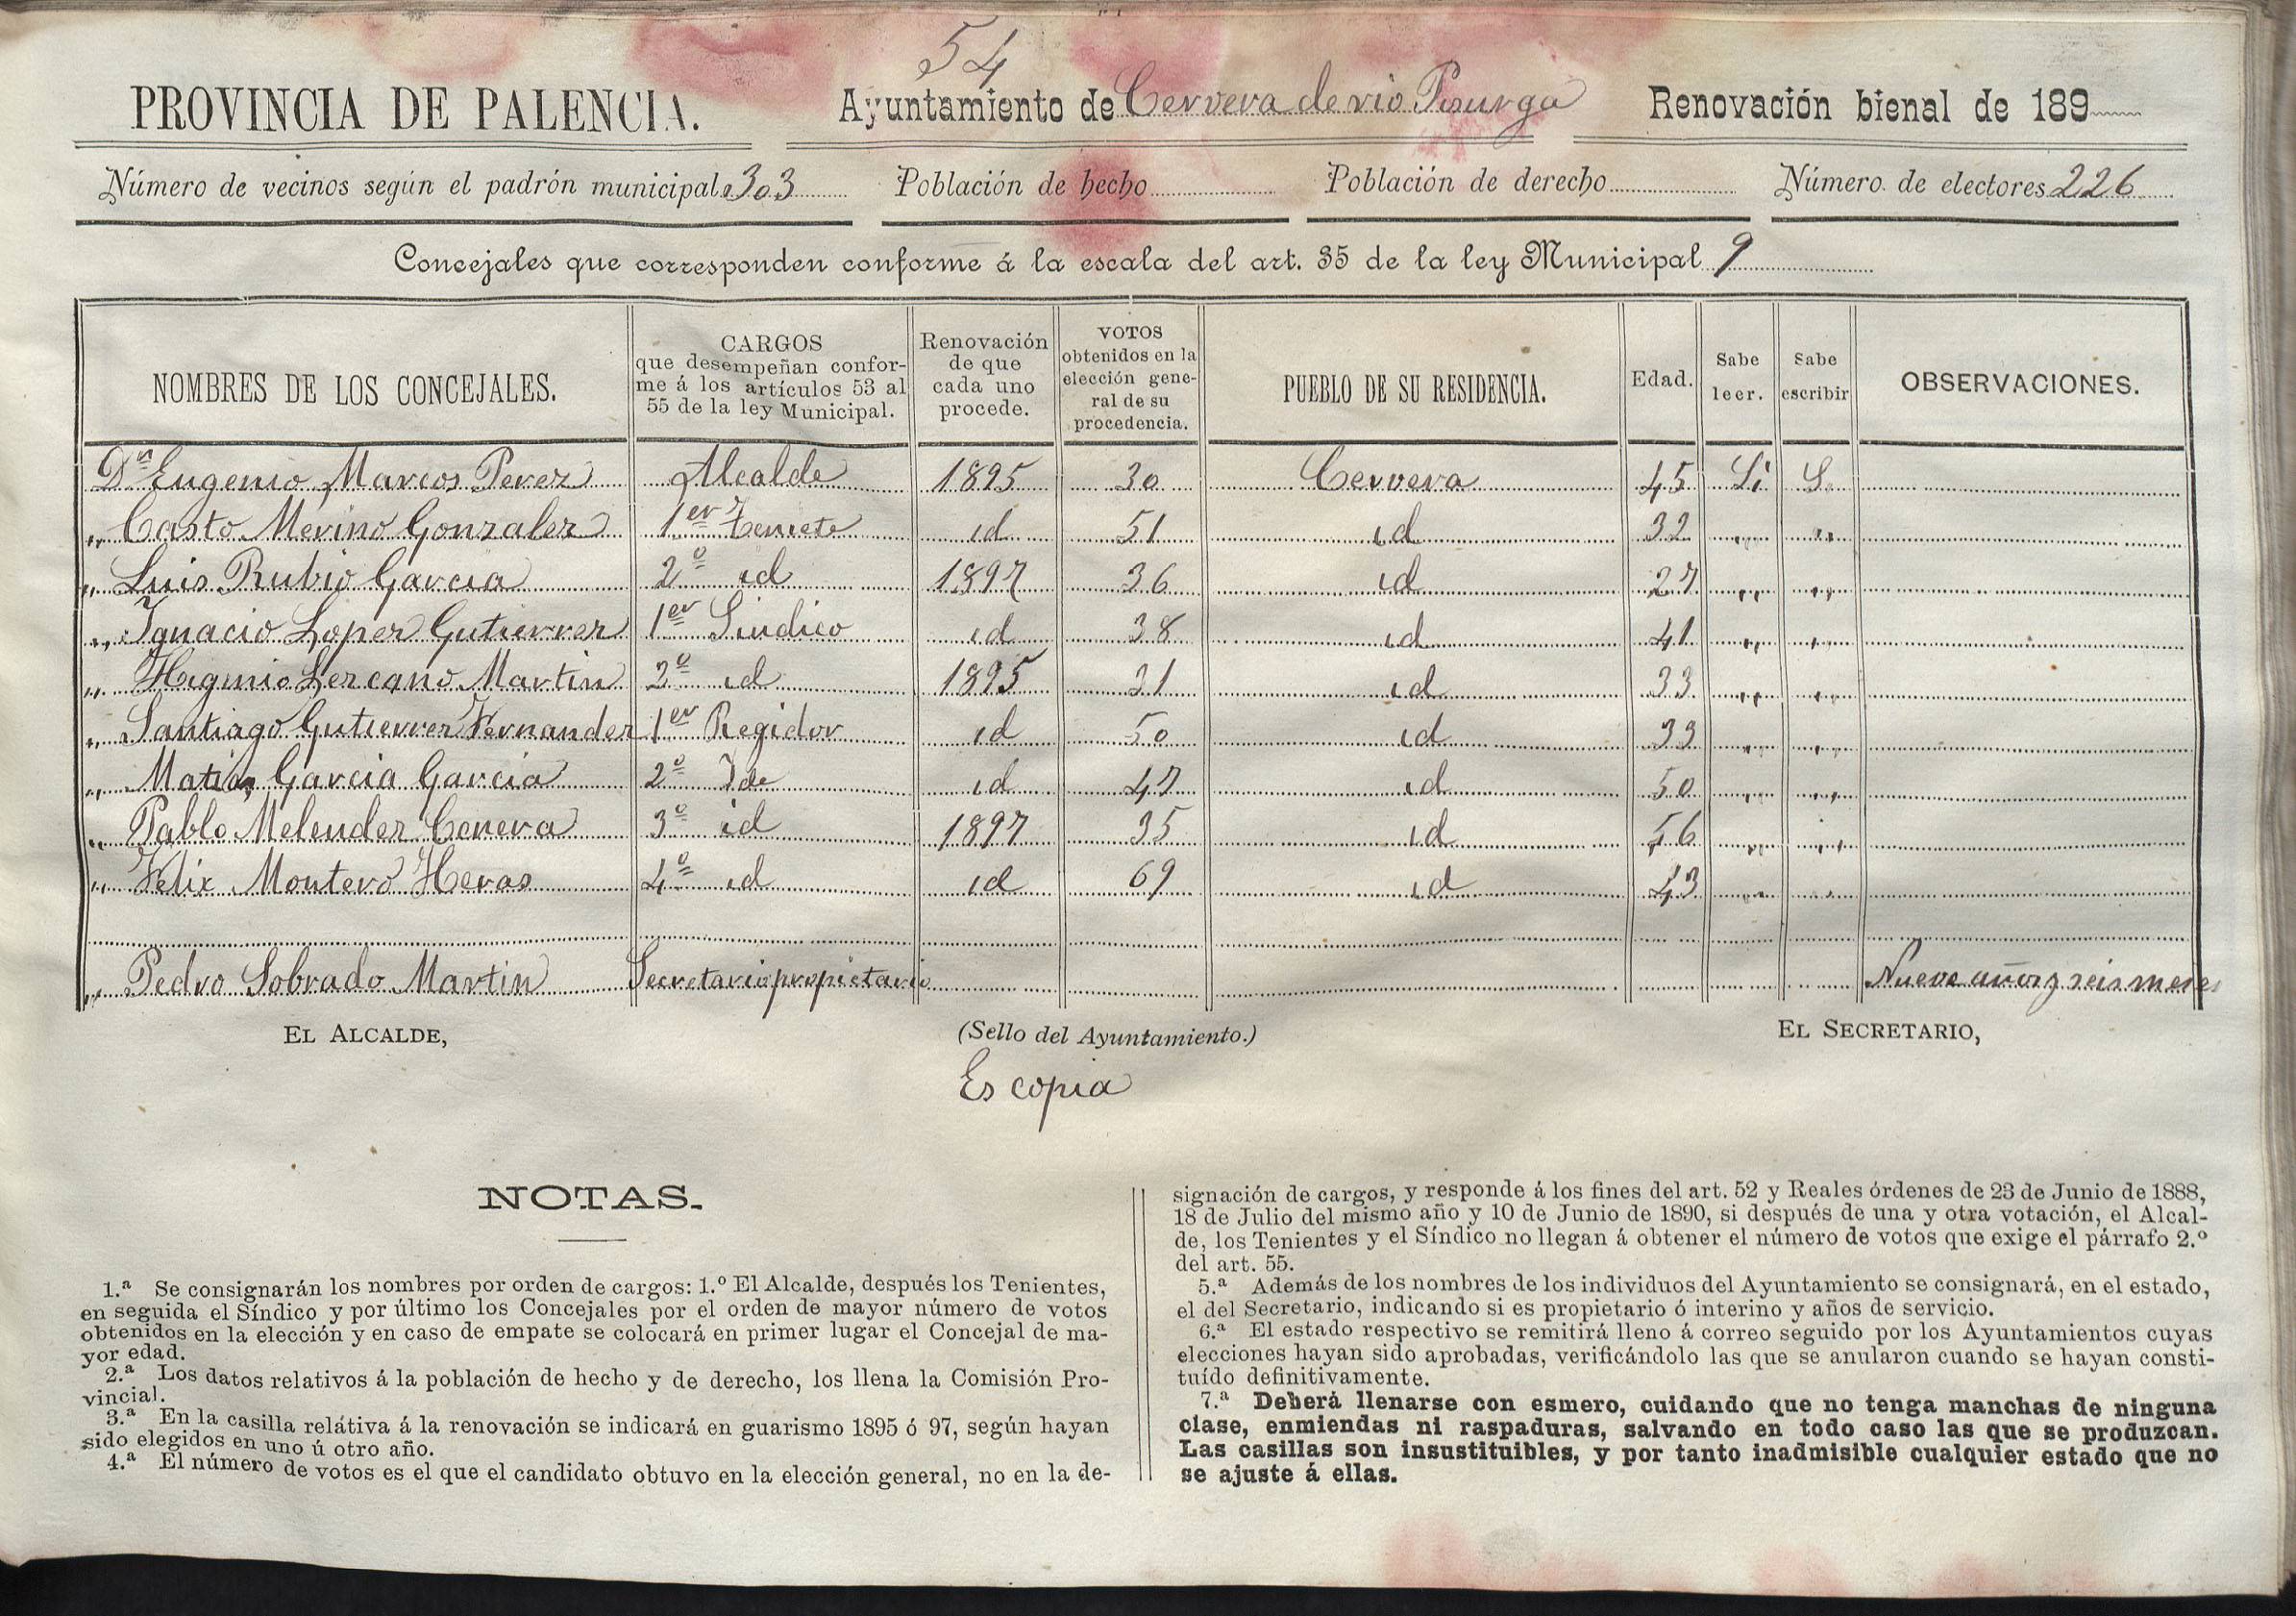 54
PROVINCIA DE PALENCIA. Ayuntamiento de Cervera de rio Pisurga Renovación bienal de 189
Número de vecinos según el padrón municipal 303 Población de hecho Población de derecho Número de electores 226
Concejales que corresponden conforme á la escala del art. 35 de la ley Municipal 9
NOMBRES DE LOS CONCEJALES. CARGOS que desempeñan conforme á los artículos 53 al 55 de la ley Municipal. Renovación de que cada uno procede. VOTOS obtenidos en la elección general de su procedencia. PUEBLO DE SU RESIDENCIA. Edad. Sabe leer. Sabe escribir OBSERVACIONES.
Dn Eugenio Marcos Perez Alcalde 1895 30 Cervera 45 Si S.
„ Casto Merino Gonzalez 1er Teniete id 51 id 32 „ „
„ Luis Rubio Garcia 2º id 1897 36 id 27 „ „
„ Ygnacio Lopez Gutierrez 1er Sindico id 38 id 41 „ „
„ Higinio Lezcano Martin 2º id 1895 31 id 33 „ „
„ Santiago Gutierrez Fernandez 1er Regidor id 50 id 33 „ „
„ Matias Garcia Garcia 2º Ide id 47 id 50 „ „
„ Pablo Melendez Cenera 3º id 1897 35 id 56 „ „
„ Felix Montero Heras 4º id id 69 id 43 „ „
„ Pedro Sobrado Martin Secretario propietario Nueve años y seis meses
EL ALCALDE, (Sello del Ayuntamiento.) EL SECRETARIO,
Es copia
NOTAS.
1.ª Se consignarán los nombres por orden de cargos: 1.º El Alcalde, después los Tenientes,
en seguida el Síndico y por último los Concejales por el orden de mayor número de votos
obtenidos en la elección y en caso de empate se colocará en primer lugar el Concejal de ma-
yor edad.
2.ª Los datos relativos á la población de hecho y de derecho, los llena la Comisión Pro-
vincial.
3.ª En la casilla relátiva á la renovación se indicará en guarismo 1895 ó 97, según hayan
sido elegidos en uno ú otro año.
4.ª El número de votos es el que el candidato obtuvo en la elección general, no en la de-
signación de cargos, y responde á los fines del art. 52 y Reales órdenes de 23 de Junio de 1888,
18 de Julio del mismo año y 10 de Junio de 1890, si después de una y otra votación, el Alcal-
de, los Tenientes y el Síndico no llegan á obtener el número de votos que exige el párrafo 2.º
del art. 55.
5.ª Además de los nombres de los individuos del Ayuntamiento se consignará, en el estado,
el del Secretario, indicando si es propietario ó interino y años de servicio.
6.ª El estado respectivo se remitirá lleno á correo seguido por los Ayuntamientos cuyas
elecciones hayan sido aprobadas, verificándolo las que se anularon cuando se hayan consti-
tuído definitivamente.
7.ª Deberá llenarse con esmero, cuidando que no tenga manchas de ninguna
clase, enmiendas ni raspaduras, salvando en todo caso las que se produzcan.
Las casillas son insustituibles, y por tanto inadmisible cualquier estado que no
se ajuste á ellas.